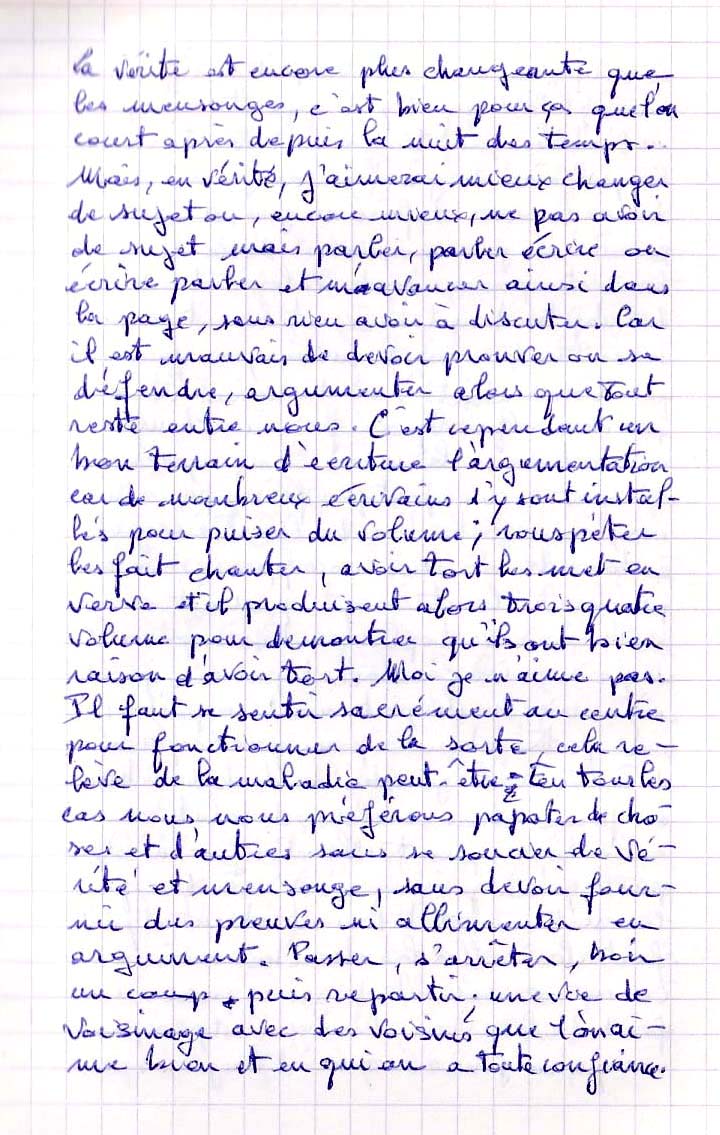 la vérité est encore plus changeante que
les mensonges, c'est bien pour ça que l'on
court après depuis la nuit des temps.
Mais, en vérité, j'aimerai mieux changer
de sujet ou, encore mieux, ne pas avoir
de sujet mais parler, parler écrire ou
écrire parler et m'avancer ainsi dans
la page, sans rien avoir à discuter. Car
il est mauvais de devoir prouver ou se
défendre, argumenter alors que tout
reste entre nous. C'est cependant un
bon terrain d'écriture l'argumentation
car de nombreux écrivains s'y sont instal-
lés pour puiser du volume; rouspéter
les fait chanter, avoir tort les met en
verve et il produisent alors trois quatre
volume pour démontrer qu'ils ont bien
raison d'avoir tort. Moi je n'aime pas.
Il faut se sentir sacrément au centre
pour fonctionner de la sorte, cela re-
lève de la maladie peut-être. En tous les
cas nous nous préférons papoter de cho-
ses et d'autres sans se soucier de vé-
rité et mensonge, sans devoir four-
nir des preuves ni allimenter en
argument. Passer, s'arrêter, boir
un coup puis repartir, une vie de
voisinage avec des voisins que l'on ai-
me bien et en qui on a toute confiance.